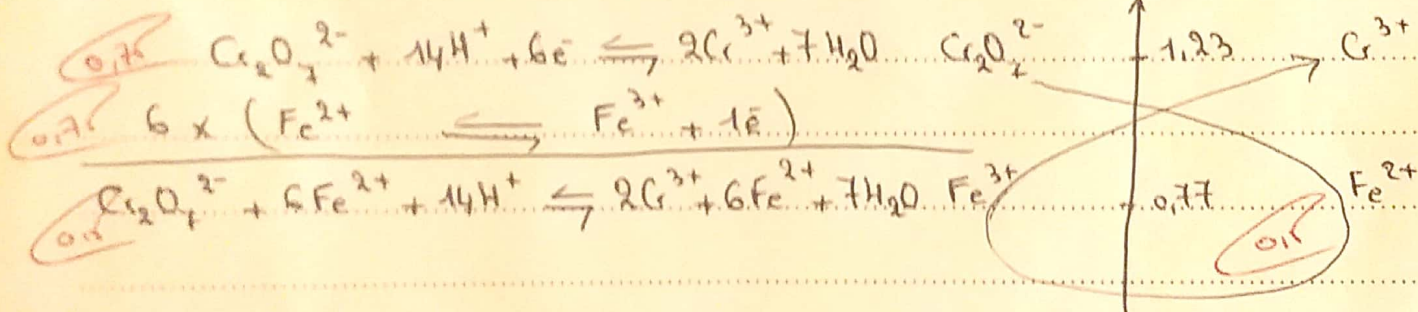 0,75 Cr₂O₇²⁻ + 14H⁺ + 6e⁻ ⇌ 2Cr³⁺ + 7H₂O Cr₂O₇²⁻ 1,23 Cr³⁺
0,75 6 x (Fe²⁺ ⇌ Fe³⁺ + 1e⁻)
Cr₂O₇²⁻ + 6Fe²⁺ + 14H⁺ ⇌ 2Cr³⁺ + 6Fe²⁺ + 7H₂O Fe³⁺ 0,77 Fe²⁺
0,5 0,5